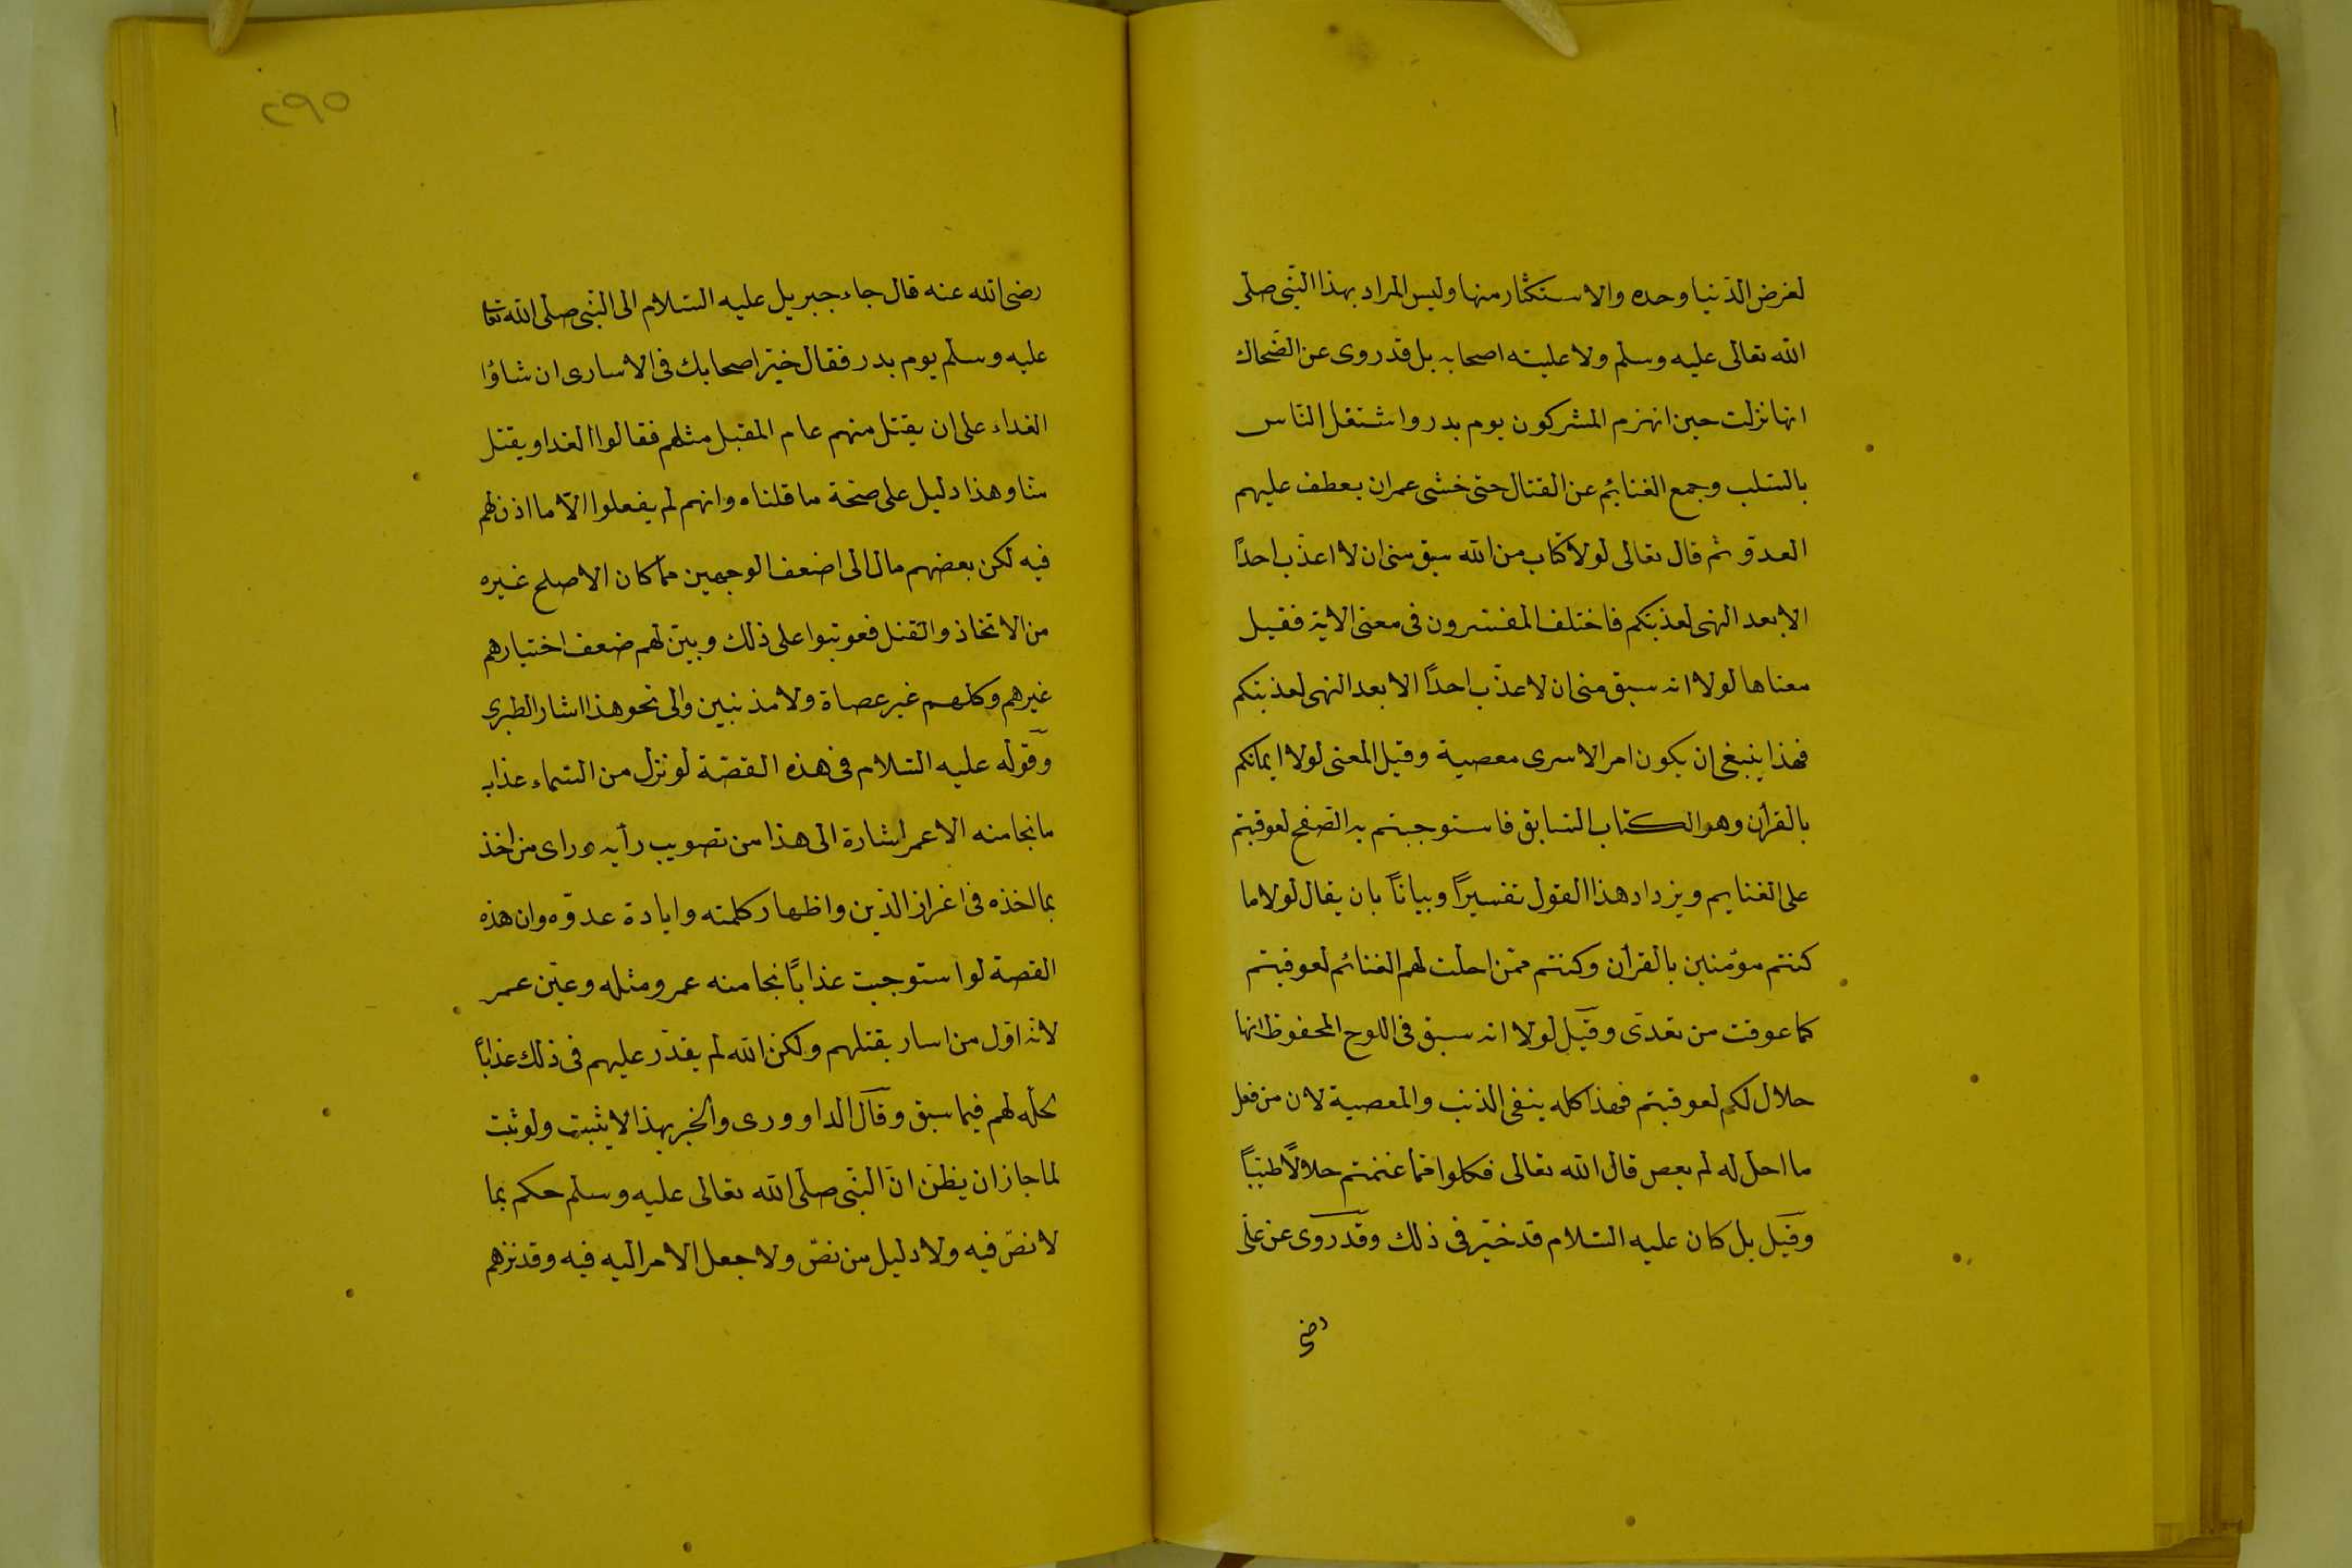 لغرض الدّنيا وحده والاستكثار منها وليس المراد بهذا النّبى صلى
الله تعالى عليه وسلم ولا عليته اصحابه بل قد روى عن الضّحاك
انها نزلت حين انهزم المشركون يوم بدر واشتغل النّاس
بالسّلب وجمع الغنائم عن القتال حتى خشى عمر ان يعطف عليهم
العدوّ ثم قال تعالى لولا كتاب من الله سبق منى ان لا اعذّب احداً
الا بعد النهى لعذبتكم فاختلف المفسّرون فى معنى الاية فقيل
معناها لولا انه سبق منى ان لا عذّب احداً الا بعد النهى لعذبتكم
فهذا ينبغى ان يكون امر الاسرى معصية وقيل المعنى لولا ايمانكم
بالقرآن وهو الكتاب السّابق فاستوجبتم به الصّفح لعوقبتم
على الغنايم ويزداد هذا القول تفسيراً وبياناً بان يقال لولا ما
كنتم مؤمنين بالقرآن وكنتم ممّن احلّت لهم الغنائم لعوقبتم
كما عوقت من تعدّى وقيل لولا انه سبق فى اللوح المحفوظ انها
حلال لكم لعوقبتم فهذا كله ينفى الذنب والمعصية لان من فعل
ما احل له لم يعص قال الله تعالى فكلوا ممّا غنمتم حلالاً طيّباً
وقيل بل كان عليه السّلام قد خيّر فى ذلك وقد روى عن علىّ
رضى
٢٩٥
رضى الله عنه قال جاء جبريل عليه السّلام الى النّبى صلى الله تعا
عليه وسلم يوم بدر فقال خيّر اصحابك فى الاسارى ان شاؤا
الفداء على ان يقتل منهم عام المقبل مثلهم فقالوا الفدا ويقتل
منّا وهذا دليل على صحّة ما قلناه وانهم لم يفعلوا الاّ ما اذن لهم
فيه لكن بعضهم مال الى اضعف الوجهين ممّا كان الاصلح غيره
من الاتخاذ والقتل فعوتبوا على ذلك وبيّن لهم ضعف اختيارهم
غيرهم وكلهم غير عصاة ولا مذنبين والى نحو هذا اشار الطبرى
وقوله عليه السّلام فى هذه القصّة لو نزل من السّماء عذاب
ما نجا منه الا عمر اشارة الى هذا من تصويب رأيه وراى من اخذ
بمااخذه فى اغراز الدّين واظهار كلمته وابادة عدوّه وان هذه
القصة لو استوجبت عذاباً نجا منه عمر ومثله وعيّن عمر
لانه اوّل من اسار بقتلهم ولكن الله لم يقدّر عليهم فى ذلك عذاباً
لحلّه لهم فيما سبق وقال الداوورى والخبر بهذا لا يثبت ولو ثبت
لما جاز ان يظنّ انّ النّبى صلى الله تعالى عليه وسلم حكم بما
لا نصّ فيه ولا دليل من نصّ ولا جعل الامر اليه فيه وقد نزهم